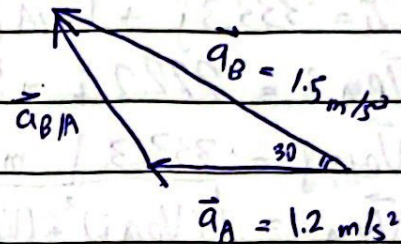 a⃗_B = 1.5 m/s²
a⃗_B/A
30
a⃗_A = 1.2 m/s²